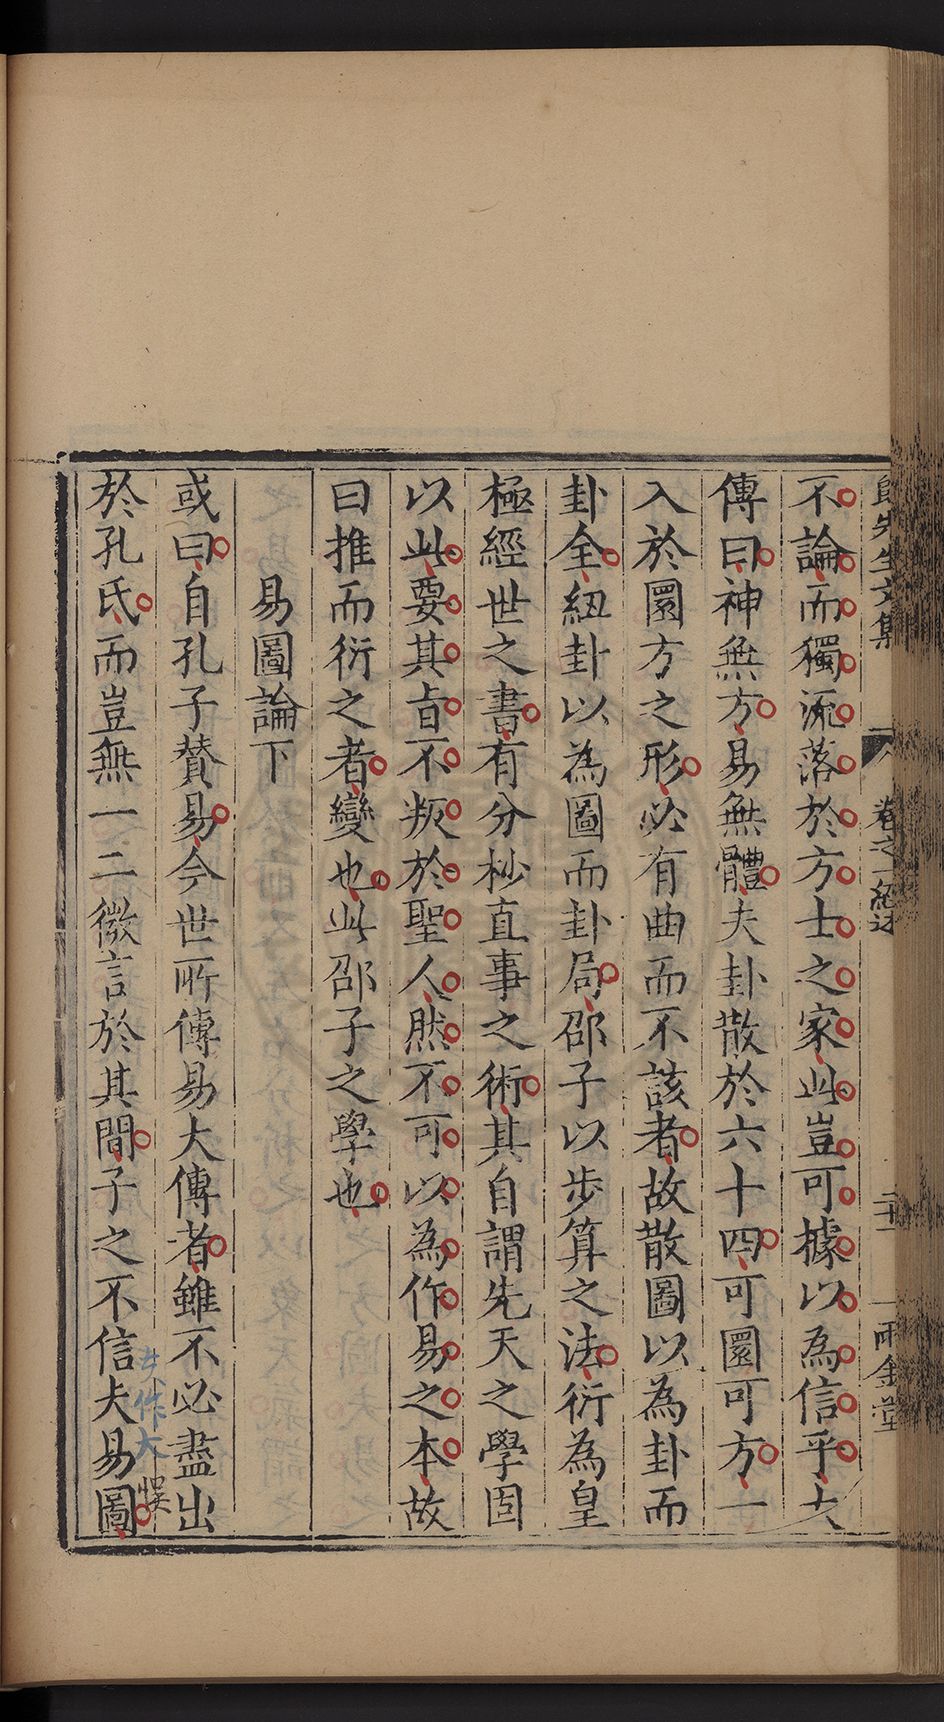 不論而獨流落於方士之家此豈可據以為信乎大
傳曰神無方易無體夫卦散於六十四可圜可方一
入於圜方之形必有曲而不該者故散圖以為卦而
卦全紐卦以為圖而卦局邵子以步算之法衍為皇
極經世之書有分杪直事之術其自謂先天之學固
以此要其旨不叛於聖人然不可以為作易之本故
曰推而衍之者變也此邵子之學也
易圖論下
或曰自孔子贊易今世所傳易大傳者雖不必盡出
於孔氏而豈無一二微言於其間子之不信夫易圖
夫作大 悞
先生文集
卷之一
二十
雨金堂